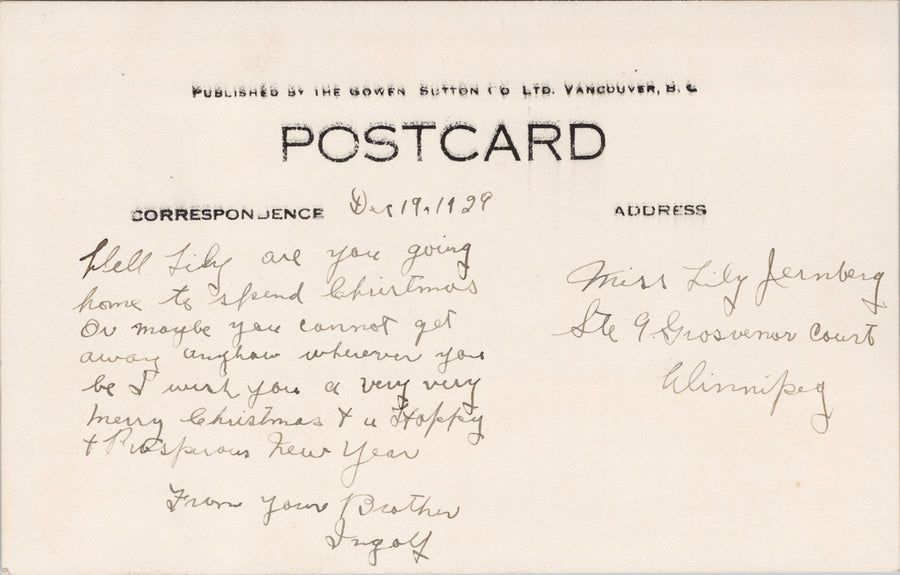 PUBLISHED BY THE GOWEN SUTTON CO LTD. VANCOUVER, B. C.
POSTCARD
CORRESPONDENCE Dec 19, 1929
ADDRESS
Well Lily are you going
home to spend Christmas
Or maybe you cannot get
away anyhow wherever you
be I wish you a very very
merry Christmas + a Happy
+ Prosperous New Year
From your Brother
Ingolf
Miss Lily Jernberg
Ste 9 Grosvenor Court
Winnipeg